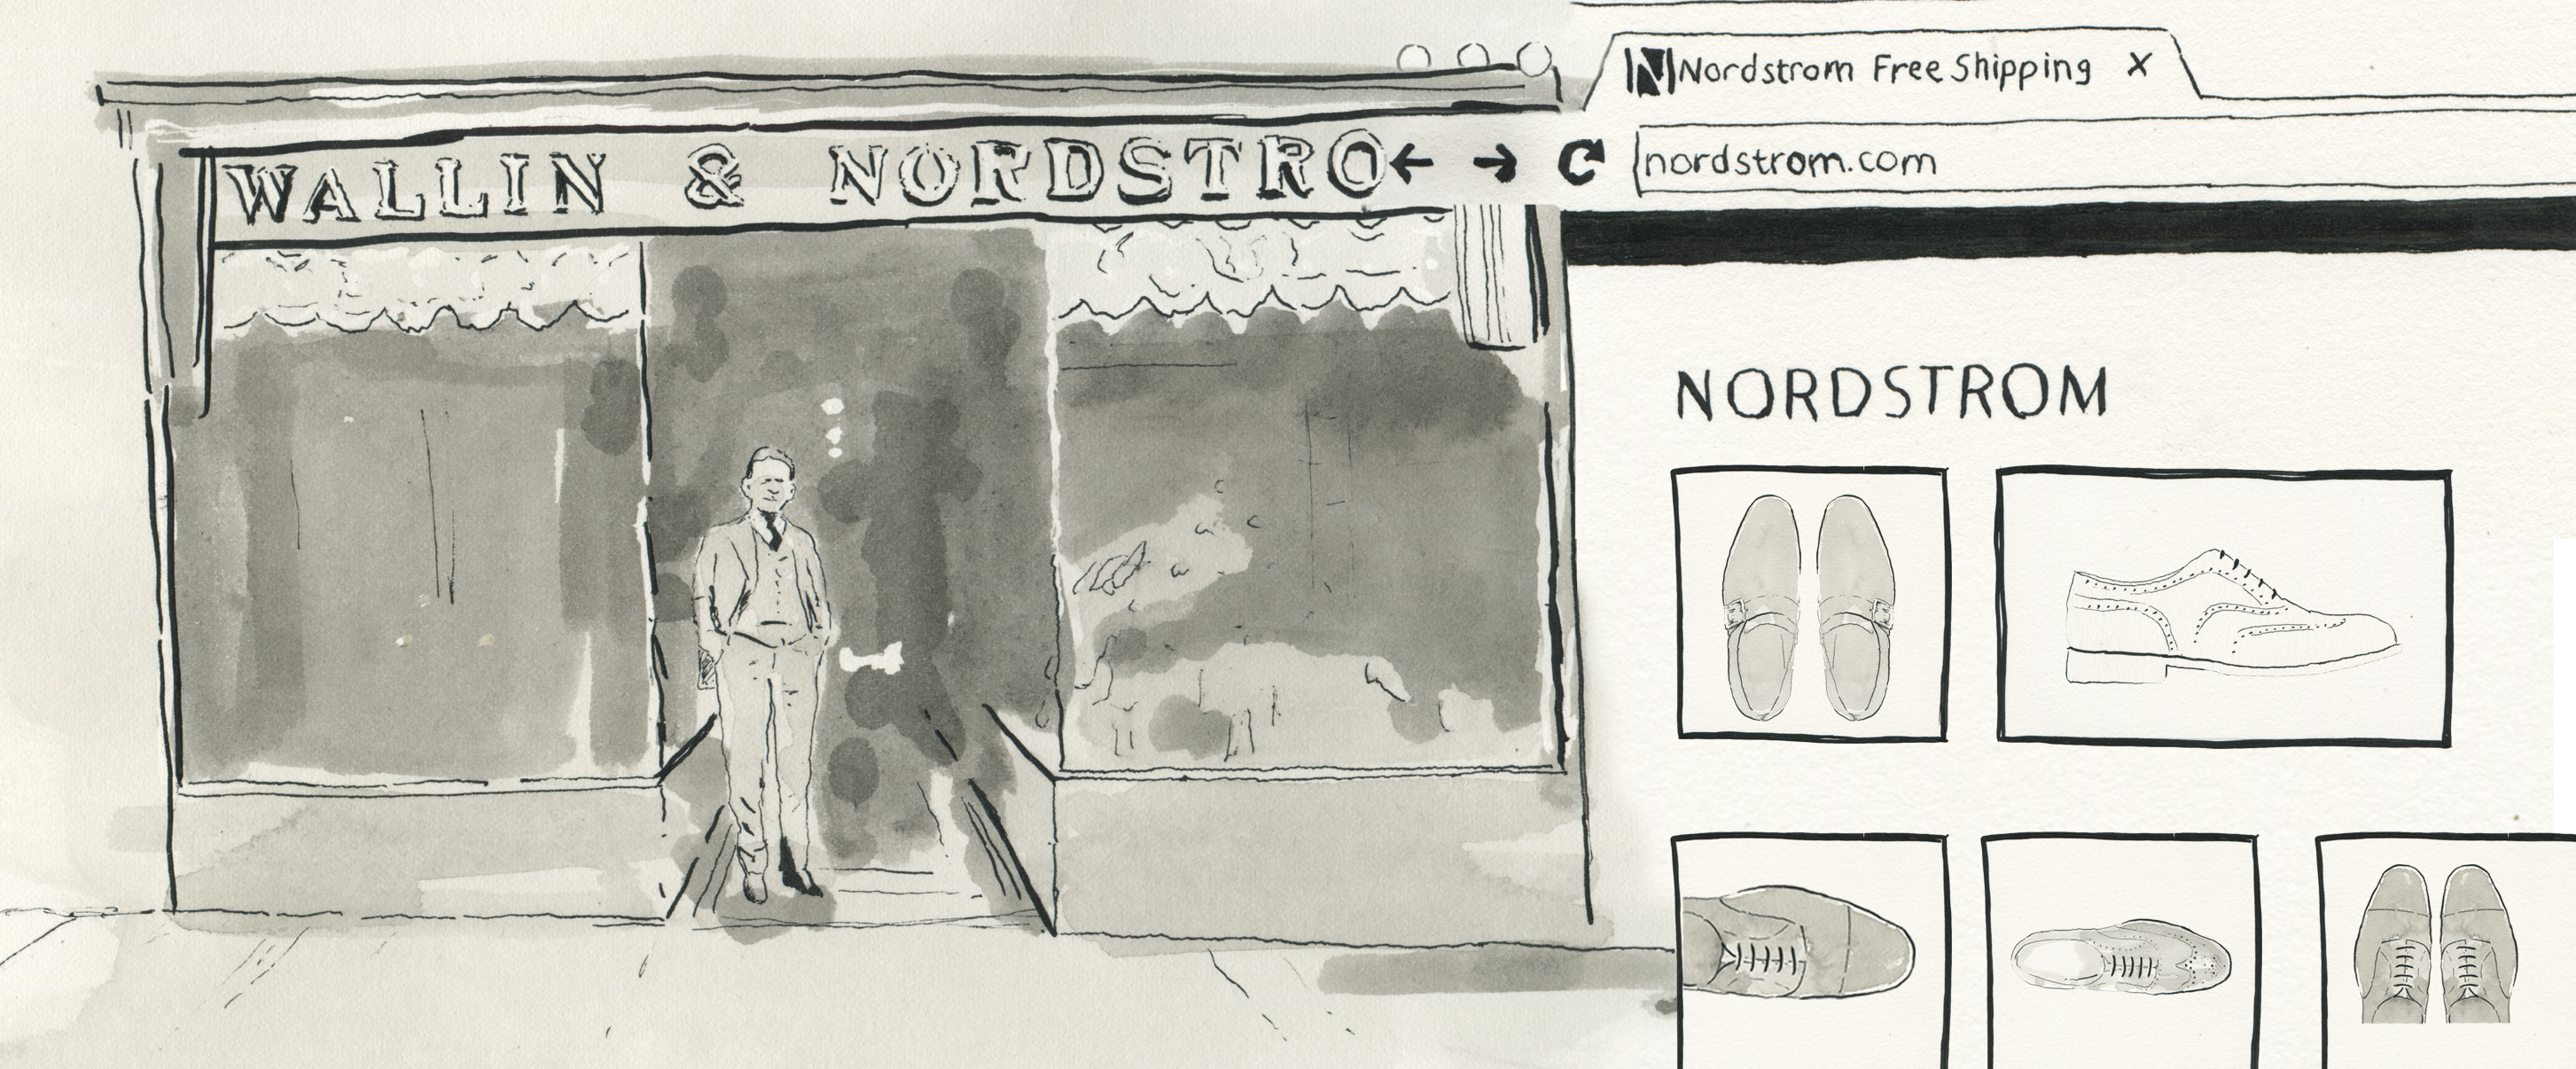 WALLIN & NORDSTRO
N Nordstrom Free Shipping X
nordstrom.com
NORDSTROM